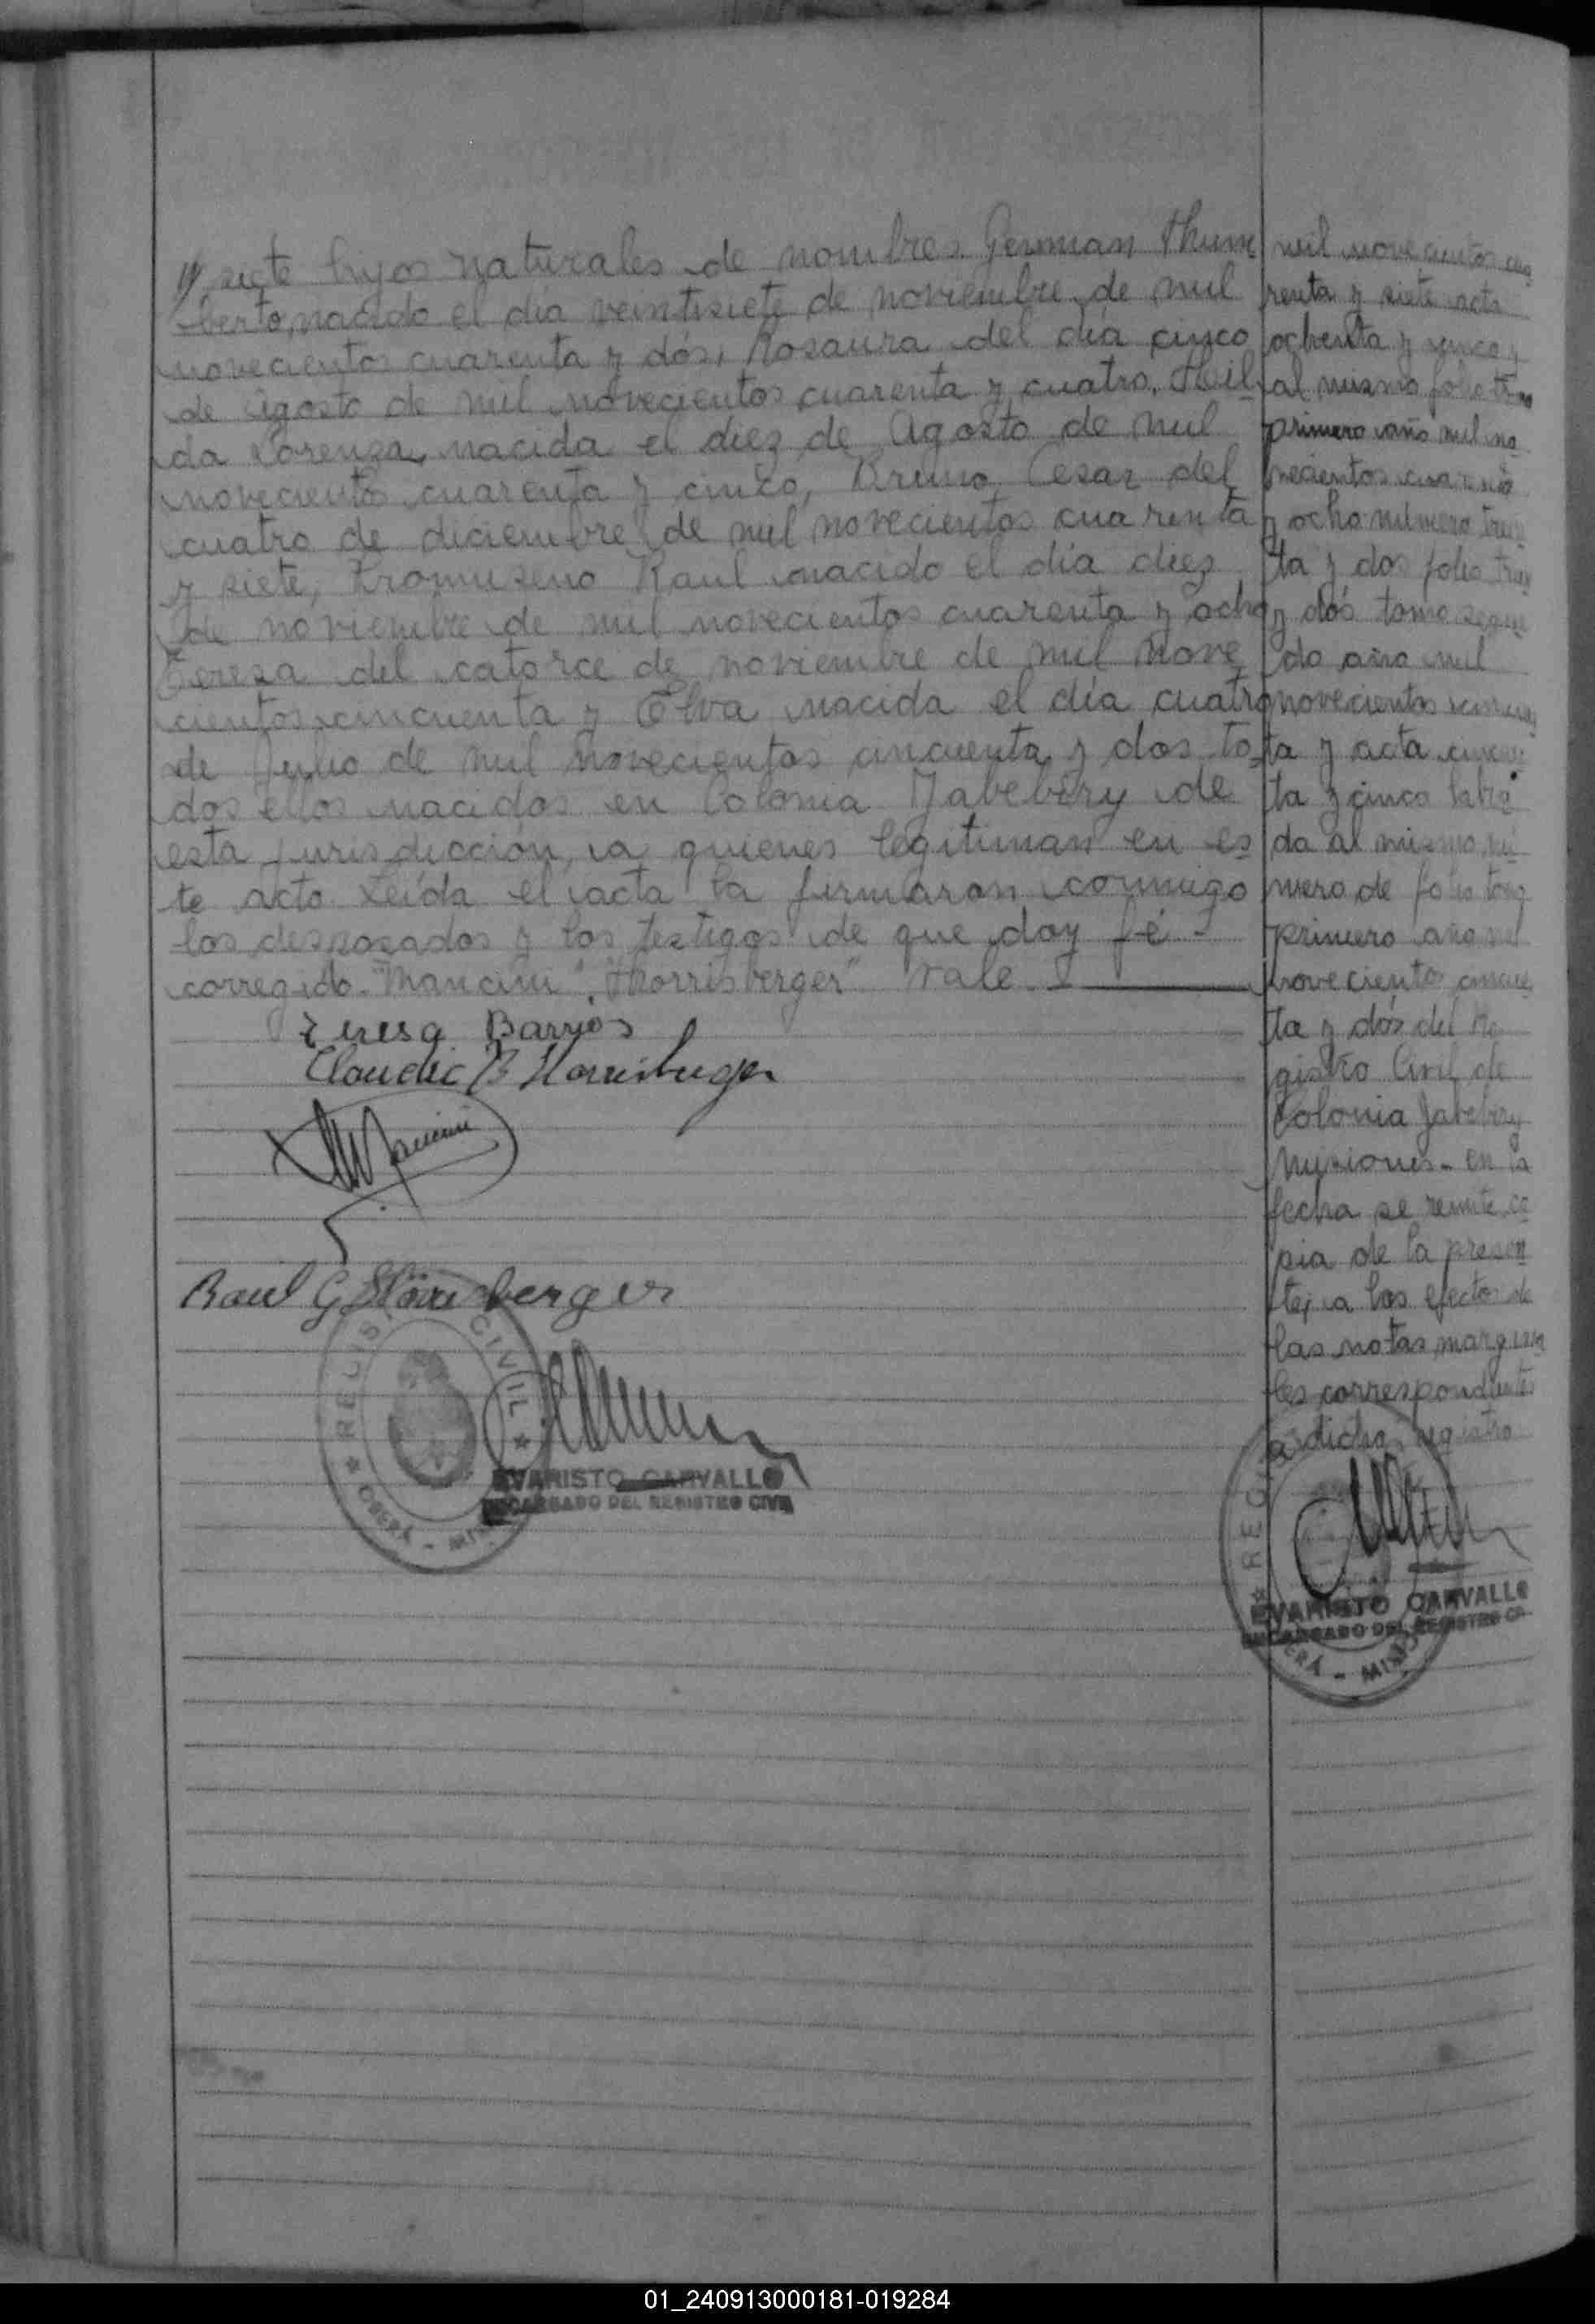 siete hijos naturales de nombres. German Hum
berto, nacido el día veintisiete de noviembre de mil
novecientos cuarenta y dós, Rosaura del día cinco
de Agosto de mil novecientos cuarenta y cuatro. Hil
da Lorenza, nacida el diez de Agosto de mil
novecientos cuarenta y cinco, Bruno Cesar del
cuatro de diciembre de mil novecientos cuarenta
y siete, Raul nacido el día diez
de noviembre de mil novecientos cuarenta y ocho
Teresa del catorce de noviembre de mil nove
cientos cincuenta y Elva nacida el día cuatro
de Julio de mil novecientos cincuenta y dos to-
dos ellos nacidos en Colonia Yabebiry de
esta jurisdicción, a quienes legitiman en es
te acto. Leída el acta la firmaron conmigo
los desposados y los testigos de que doy fé -
corregido - "Mancini". "Horrisberger" Vale
Teresa Barrios
Claudio B Horrisberger
Mancini
Raul G Horrisberger
REGIS CIVIL
OBERÁ - MIS
EVARISTO CARVALLO
ENCARGADO DEL REGISTRO CIVIL
mil novecientos cua
renta y siete acta
ochenta y cinco y
al mismo folio tomo
primero año mil no
vecientos cuarenta
y ocho número trein
ta y dos folio trein
y dós tomo segun
do año mil
novecientos cincuen
ta y acta cincuen
ta y cinco labra
da al mismo nú
mero de folio tomo
primero año mil
novecientos cincuen
ta y dós del Re
gistro Civil de
Colonia Jabebiry
Misiones - en la
fecha se remite co
pia de la presen
te, a los efectos de
las notas margina
les correspondientes
a dicho registro
REG
ERÁ - MISIO
EVARISTO CARVALLO
ENCARGADO DEL REGISTRO CI
01_240913000181-019284